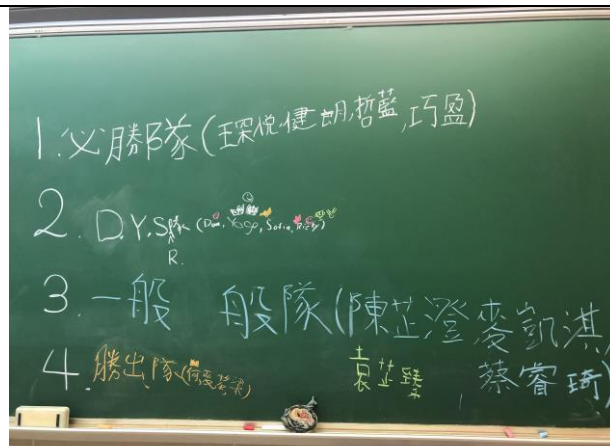 1.必勝隊(琛悅,健朗,哲藍,巧盈)
2. D.Y.S隊 (Dom, Yoyo, Sofia, Ricky)
R.
3.一般 般隊(陳芷澄 麥凱淇,
袁芷臻 蔡睿琦)
4.勝出隊(